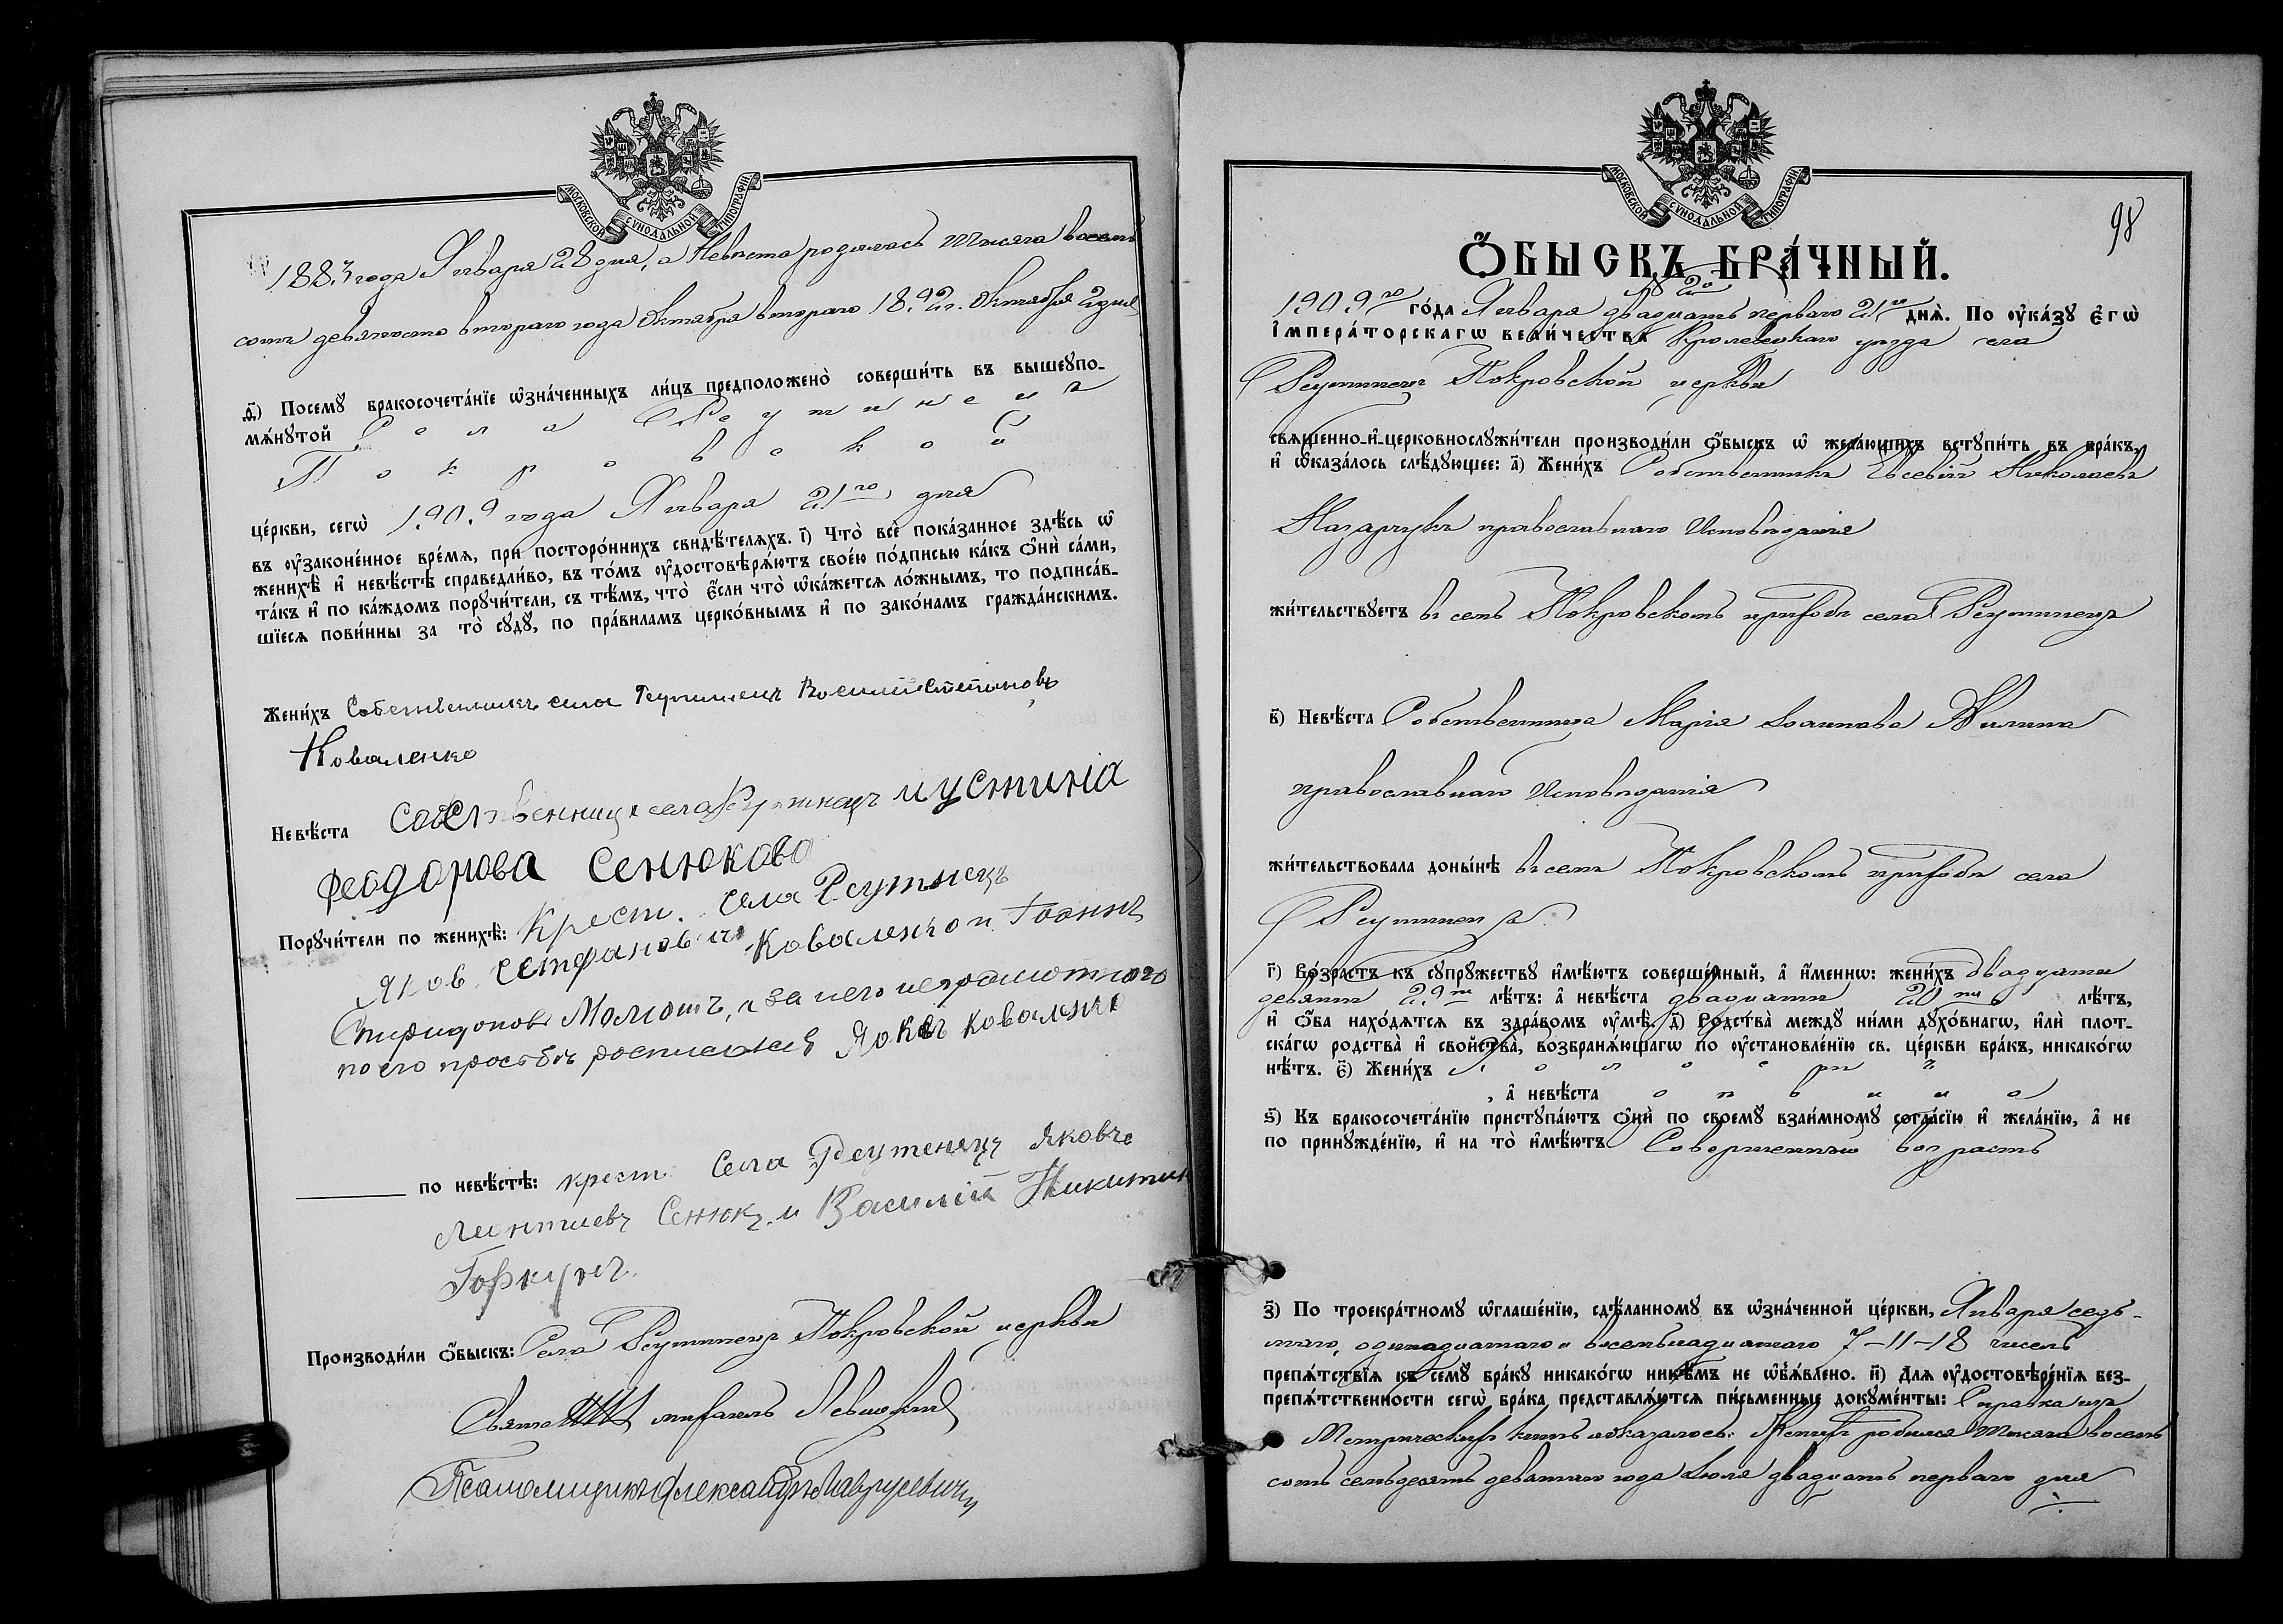 МОСКОВСКОЙ СУНОДАЛЬНОЙ ТИПОГРАФІИ
1883 года Января 28 дня, а Невѣста родилась тысяча восемь
сотъ девяносто второго года Октября второго 1892 г. Октября 2 дня
д҃і) Посемꙋ̀ бракосочета́нїе ѡ҆зна́ченныхъ ли́цъ предположенò соверши́ть въ вышеꙋпо-
мѧ́нꙋтой Села Реутинецъ
Покровской
це́ркви, сегѡ̀ 1909 года Января 21го дня
въ ᲂу҆законе́нное вре́мѧ, при посторо́ннихъ свидѣ́телѧхъ. і҃) Чтò всѐ пока́занное здѣ́сь ѡ҆
женихѣ̀ и҆ невѣ́стѣ справедли́во, въ то́мъ ᲂу҆достовѣрѧ́ютъ свое́ю по́дписью ка́къ ѻ҆нѝ са́ми,
та́къ и҆ по ка́ждомъ порꙋчи́тели, съ тѣ́мъ, чтò є҆́сли чтò ѡ҆ка́жетсѧ ло́жнымъ, то подписа́в-
шїесѧ пови́нны за тò сꙋдꙋ̀, по пра́виламъ церко́внымъ и҆ по зако́намъ гражда́нскимъ.
Жени́хъ Собственникъ села Реутинецъ Василій Степановъ
Коваленко
Невѣ́ста Собственница села Реутинецъ иустинія
Феодорова Сенюкова
Порꙋчи́тели по женихѣ̀: Крест. села Реутинецъ
Яков Стефановичъ Коваленко и Іоаннъ
Спиридоновъ, а за него неграмотного
по его просьбѣ росписался Яковъ Коваленко
по невѣ́стѣ: крест. Села Реутенецъ Яковъ
Леонтиевъ Сенюкъ и Василій Никитин
Производи́ли ѻ҆́быскъ: Села Реутинецъ Покровской церкви
Священ. михаилъ Левицкій
Псаломщикъ Александръ Лаврусевичъ
98
МОСКОВСКОЙ СУНОДАЛЬНОЙ ТИПОГРАФІИ
Ѻ҆́БЫСКЪ БРА́ЧНЫЙ.
№ 2й
1909го го́да Января двадцать перваго 21го днѧ̀. По ᲂу҆ка́зꙋ є҆гѡ̀
і҆мпера́торскагѡ вели́чества Кролевецкаго уѣзда села
Реутинецъ Покровской церкви
свѧщенно-и҆-церковнослꙋжи́тели производи́ли ѻ҆́быскъ ѡ҆ жела́ющихъ встꙋпи́ть въ бра́къ,
и҆ ѡ҆каза́лось слѣ́дꙋющее: а҃) Жени́хъ Собственникъ Евсевій Николаевъ
Назарчукъ православнаго Исповѣданія
жи́тельствꙋетъ въ семъ Покровскомъ приходѣ села Реутинецъ
в҃) Невѣ́ста Собственница Марія Іоаннова Жилина
православнаго Исповѣданія
жи́тельствовала доны́нѣ въ семъ Покровскомъ приходѣ села
Реутинецъ
г҃) Во́зрастъ къ сꙋпрꙋ́жествꙋ и҆мѣ́ютъ соверше́нный, а҆ и҆́меннѡ: жени́хъ двадцати
девяти 29ти лѣ́тъ: а҆ невѣ́ста двадцати 20ти лѣ́тъ,
и҆ ѻ҆́ба нахо́дѧтсѧ въ здра́вомъ ᲂу҆мѣ̀. д҃) Родства̀ междꙋ ни́ми дꙋхо́внагѡ, и҆лѝ плот-
ска́гѡ родства̀ и҆ свойства̀, возбранѧ́ющагѡ по ᲂу҆становле́нїю св. це́ркви бра́къ, никако́гѡ
нѣ́тъ. є҃) Жени́хъ Холостъ
, а҆ невѣ́ста дѣвица
ѕ҃) Къ бракосочета́нїю пристꙋпа́ютъ ѻ҆нѝ по своемꙋ̀ взаи́мномꙋ согла́сїю и҆ жела́нїю, а҆ не
по принꙋжде́нїю, и҆ на тò и҆мѣ́ютъ Совершенный возрастъ
з҃) По троекра́тномꙋ ѡ҆глаше́нїю, сдѣ́ланномꙋ въ ѡ҆зна́ченной це́ркви, Января седь-
маго, одинадцатаго и восемьнадцатаго 7-11-18 чиселъ
препѧ́тствїѧ къ семꙋ̀ бра́кꙋ никако́гѡ никѣ́мъ не ѡ҆бъѧ́влено. и҃) Длѧ ᲂу҆достовѣре́нїѧ без-
препѧ́тственности сегѡ̀ бра́ка представлѧ́ютсѧ пи́сьменные докꙋме́нты: Справка изъ
Метрическихъ книгъ и оказалось: Женихъ родился тысяча восемь
сотъ семьдесятъ девятаго года Іюля двадцать перваго дня